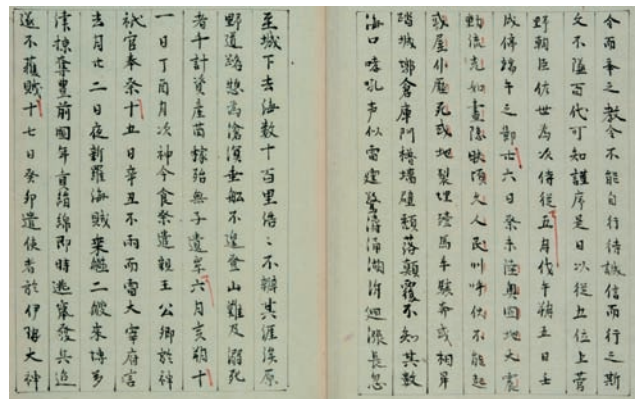 令而奉之教令不能自行待誠信而行之斯
文不隧百代可知謹序是日以從五位上菅
野朝臣佐世為次侍從五年戊午朔五日壬
戌停端午之節廿六日癸未陸奥國地大震
動流光如晝隱映頃之人民叫呼伏不能起
或屋仆壓死或地裂埋殪馬牛駭奔或相昇
踏城郭倉庫門櫓墻壁頽落顛覆不知其數
海口哮吼声似雷霆驚濤涌潮泝洄漲長忽
至城下去海數十百里浩々不辨其涯涘原
野道路惣為滄溟乗船不遑登山難及溺死
者千計資産苗稼殆無孑遺焉六月亥朔十
一日丁酉月次神今食祭遣親王公卿於神
祇官奉祭十五日辛丑不雨而雷大宰府言
去月廿二日夜新羅海賊乗艦二艘来博多
津掠奪豊前國年貢絹綿即時逃竄發兵追
遂不獲賊十七日癸卯遣使者於伊勢大神